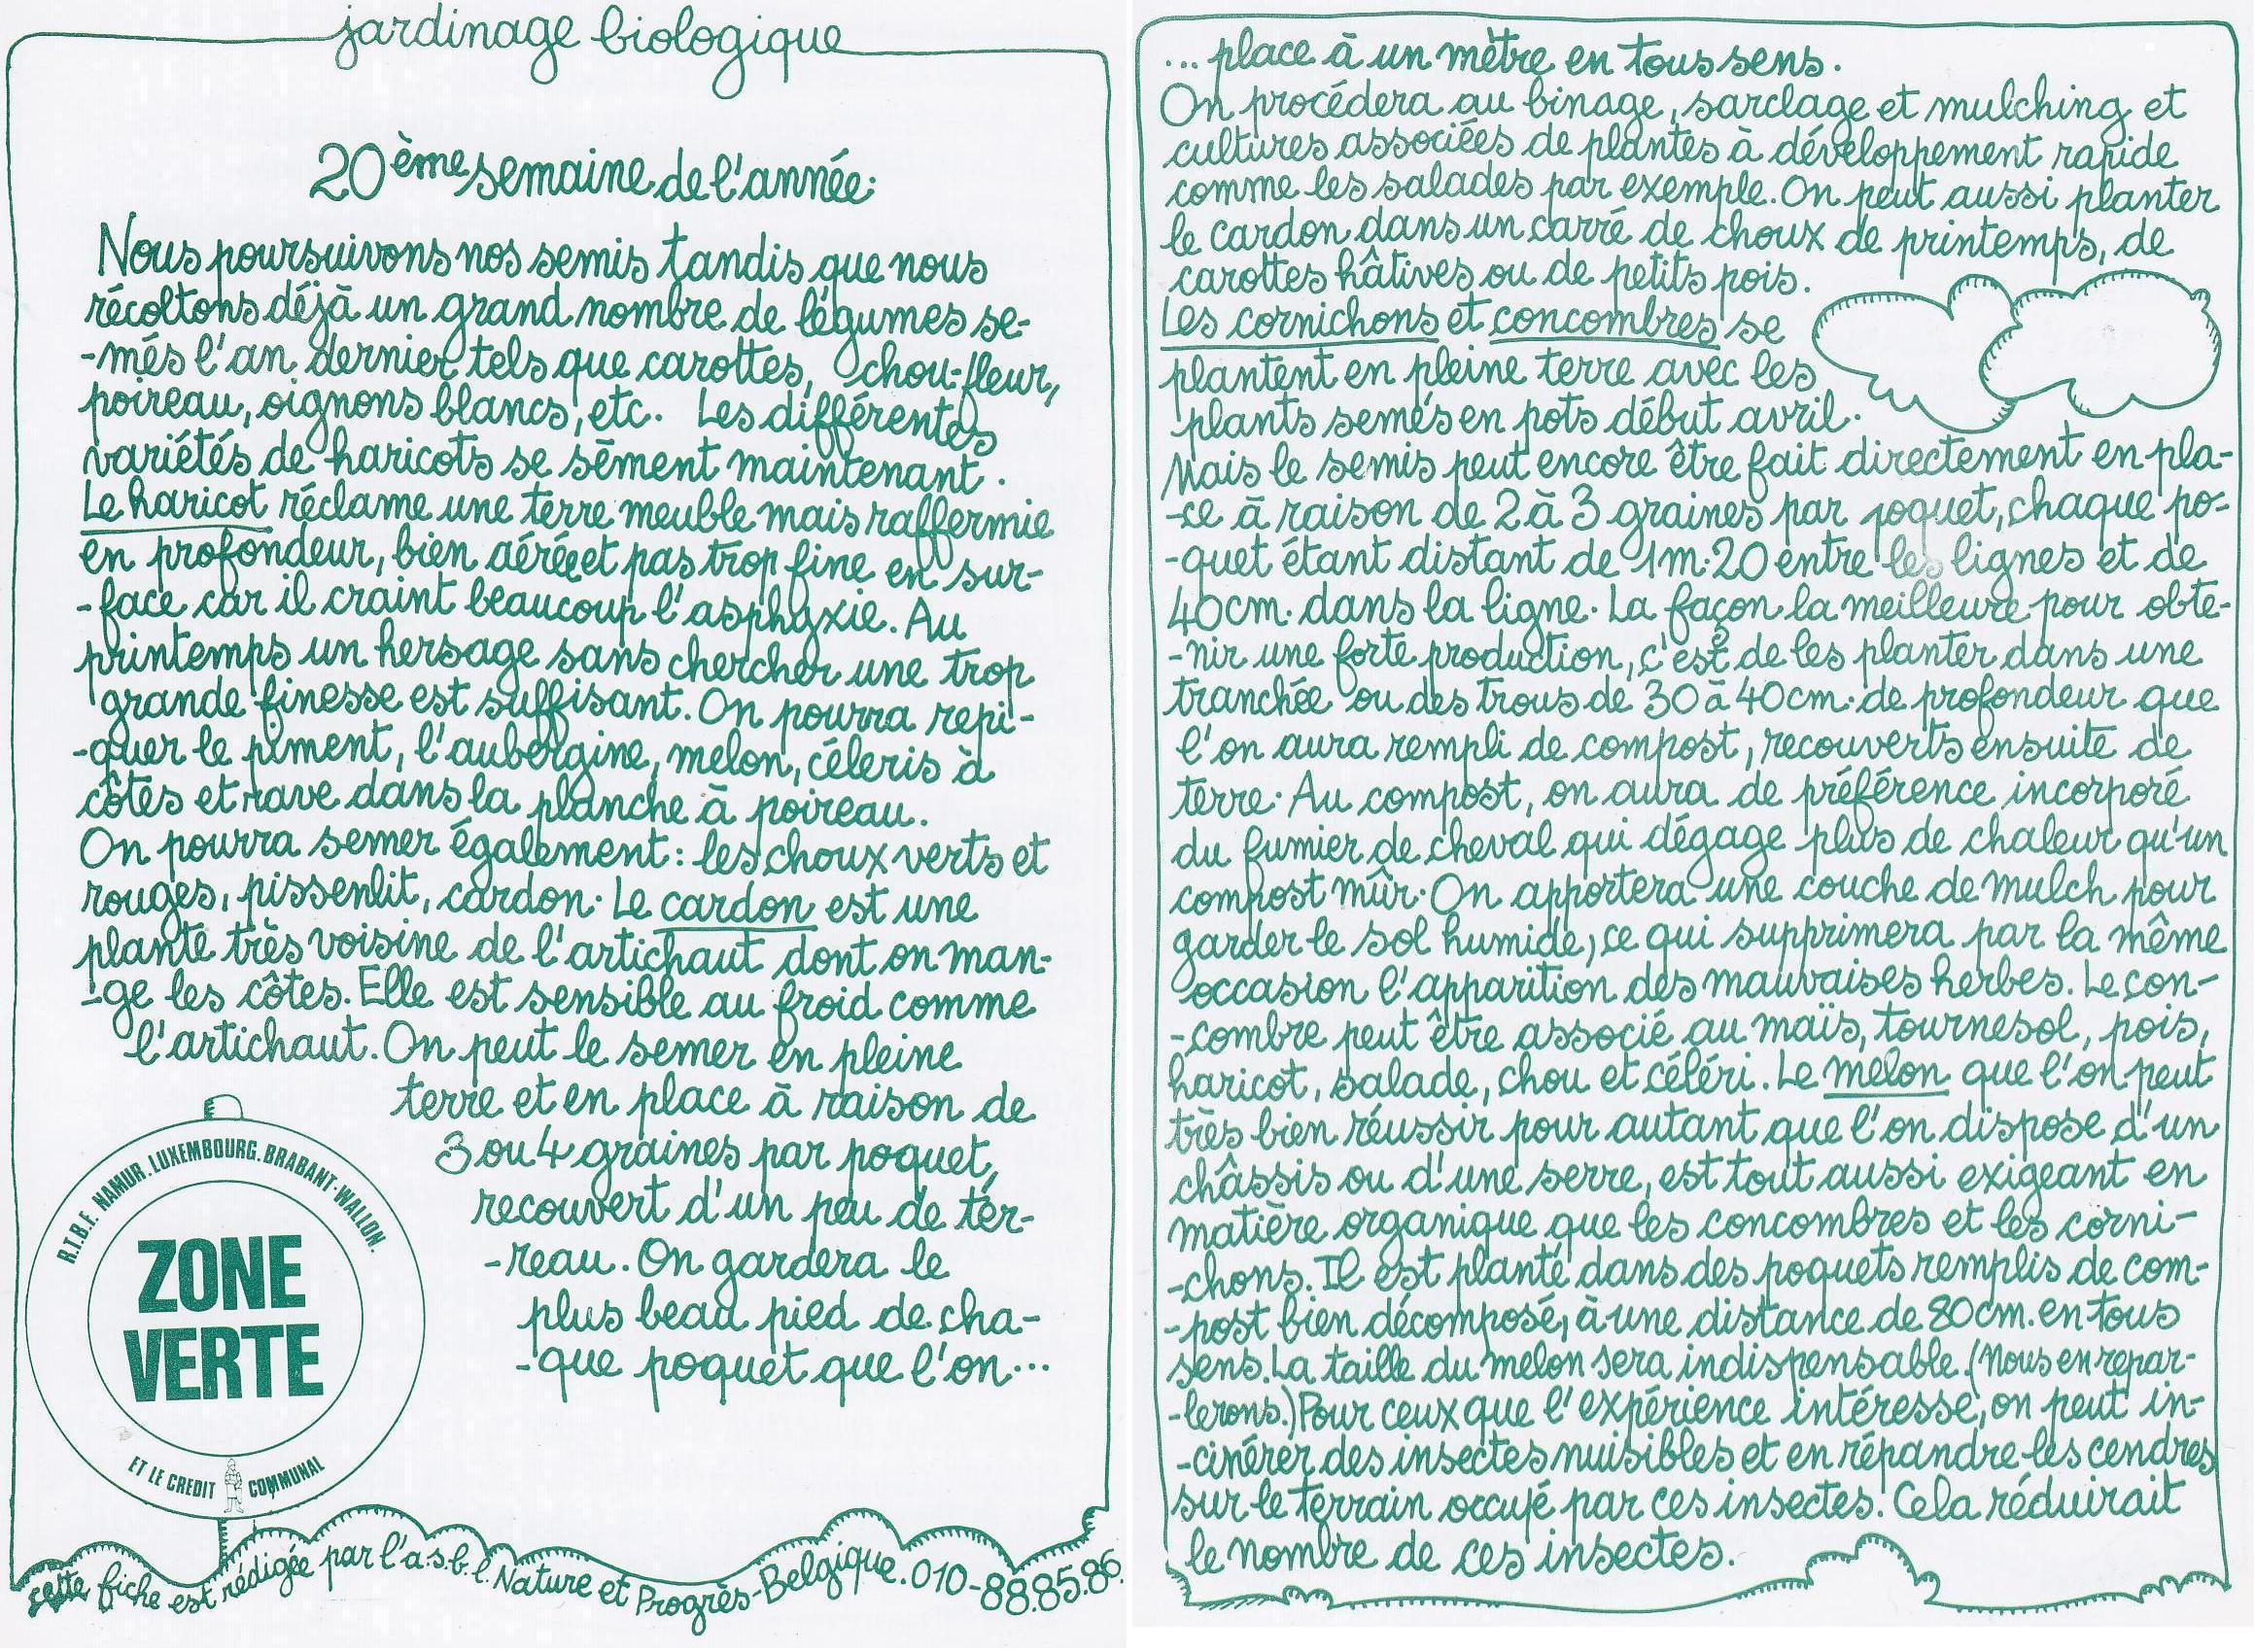 jardinage biologique
20ème semaine de l'année.
Nous poursuivons nos semis tandis que nous
récoltons déjà un grand nombre de légumes se-
-més l'an dernier tels que carottes, chou-fleur,
poireau, oignons blancs, etc. Les différentes
variétés de haricots se sèment maintenant.
Le haricot réclame une terre meuble mais raffermie
en profondeur, bien aérée et pas trop fine en sur-
-face car il craint beaucoup l'asphyxie. Au
printemps un hersage sans chercher une trop
grande finesse est suffisant. On pourra repi-
-quer le piment, l'aubergine, melon, céleris à
côtes et rave dans la planche à poireau.
On pourra semer également : les choux verts et
rouges, pissenlit, cardon. Le cardon est une
plante très voisine de l'artichaut dont on man-
-ge les côtes. Elle est sensible au froid comme
l'artichaut. On peut le semer en pleine
terre et en place à raison de
3 ou 4 graines par poquet,
recouvert d'un peu de ter-
-reau. On gardera le
plus beau pied de cha-
-que poquet que l'on...
R.T.B.F. NAMUR. LUXEMBOURG. BRABANT-WALLON.
ZONE
VERTE
ET LE CREDIT COMMUNAL
cette fiche est rédigée par l'a.s.b.l. Nature et Progrès-Belgique. 010-88.85.86.
... place à un mètre en tous sens.
On procédera au binage, sarclage et mulching et
cultures associées de plantes à développement rapide
comme les salades par exemple. On peut aussi planter
le cardon dans un carré de choux de printemps, de
carottes hâtives ou de petits pois.
Les cornichons et concombres se
plantent en pleine terre avec les
plants semés en pots début avril.
Mais le semis peut encore être fait directement en pla-
-ce à raison de 2 à 3 graines par poquet, chaque po-
-quet étant distant de 1m.20 entre les lignes et de
40cm. dans la ligne. La façon la meilleure pour obte-
-nir une forte production, c'est de les planter dans une
tranchée ou des trous de 30 à 40cm. de profondeur que
l'on aura rempli de compost, recouverts ensuite de
terre. Au compost, on aura de préférence incorporé
du fumier de cheval qui dégage plus de chaleur qu'un
compost mûr. On apportera une couche de mulch pour
garder le sol humide, ce qui supprimera par la même
occasion l'apparition des mauvaises herbes. Le con-
-combre peut être associé au maïs, tournesol, pois,
haricot, salade, chou et céléri. Le melon que l'on peut
très bien réussir pour autant que l'on dispose d'un
châssis ou d'une serre, est tout aussi exigeant en
matière organique que les concombres et les corni-
-chons. Il est planté dans des poquets remplis de com-
-post bien décomposé, à une distance de 80cm. en tous
sens. La taille du melon sera indispensable. (Nous en repar-
-lerons.) Pour ceux que l'expérience intéresse, on peut in-
-cinérer des insectes nuisibles et en répandre les cendres
sur le terrain occupé par ces insectes. Cela réduirait
le nombre de ces insectes.